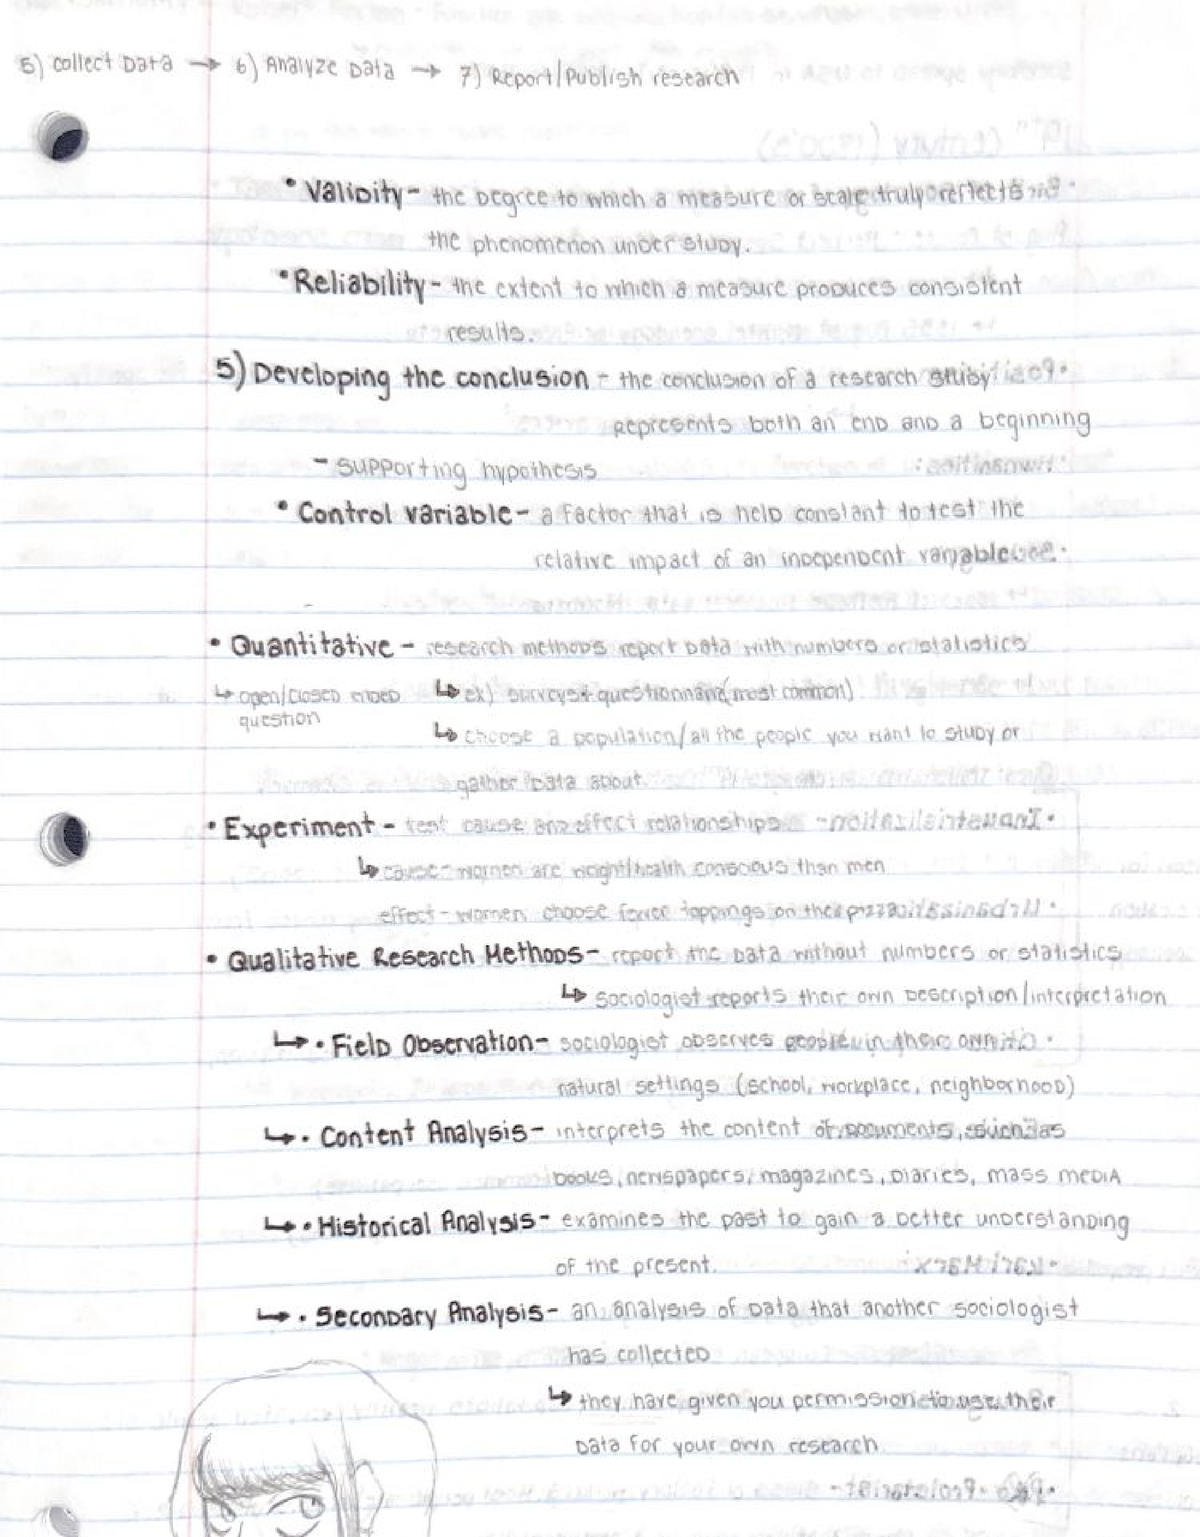 5) collect Data → 6) Analyze Data → 7) Report/Publish research
• Validity - the degree to which a measure or scale truly reflects
the phenomenon under study.
• Reliability - the extent to which a measure produces consistent
results.
5) Developing the conclusion - the conclusion of a research study
represents both an end and a beginning
- supporting hypothesis
• Control variable - a factor that is held constant to test the
relative impact of an independent variable
• Quantitative - research methods report data with numbers or statistics
↳ open/closed ended question
↳ ex) surveys + (most common)
↳ choose a population/all the people you want to study or
gather data about.
• Experiment - test cause and effect relationships
↳ cause - women are weight/health conscious than men
effect - women choose fewer toppings on their pizza
• Qualitative Research Methods - report the data without numbers or statistics
↳ sociologist reports their own description/interpretation
↳ • Field Observation - sociologist observes people in their own
natural settings (school, workplace, neighborhood)
↳ • Content Analysis - interprets the content of documents, such as
books, newspapers, magazines, diaries, mass media
↳ • Historical Analysis - examines the past to gain a better understanding
of the present.
↳ • Secondary Analysis - an analysis of data that another sociologist
has collected
↳ they have given you permission to use their
data for your own research